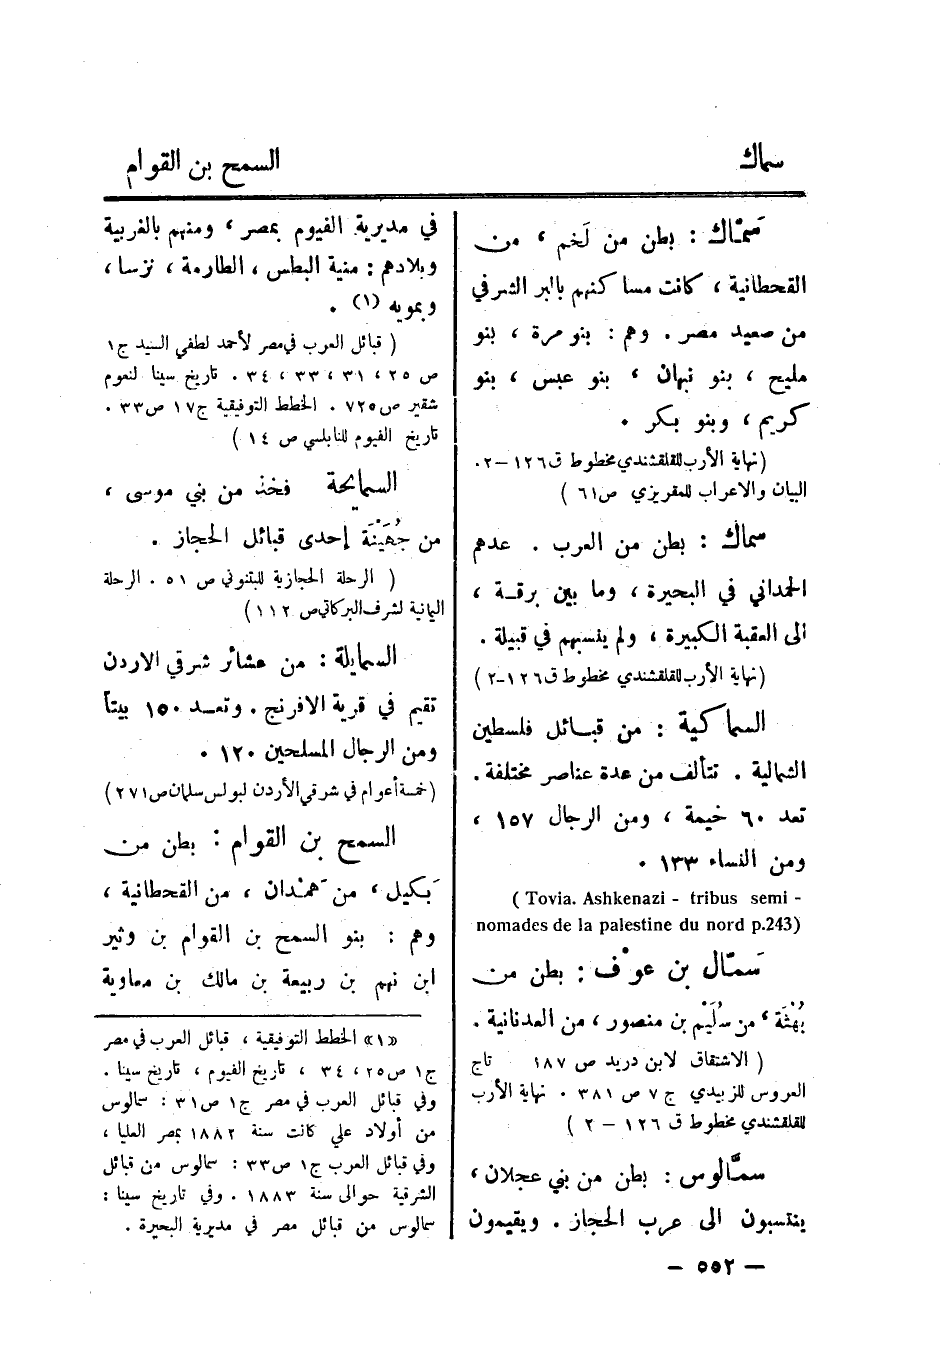 سماك
السمح بن القوام
سَمّاك : بطن من لَخم ، من
القحطانية ، كانت مساكنهم بالبر الشرقي
من صعيد مصر . وهم : بنو مرة ، بنو
مليح ، بنو نبهان ، بنو عبس ، بنو
كريم ، وبنو بكر .
(نهاية الأرب للقلقشندي مخطوط ق١٢٦ –٢.
البيان والاعراب للمقريزي ص٦١ )
سماك : بطن من العرب . عدهم
الحمداني في البحيرة ، وما بين برقة ،
الى العقبة الكبيرة ، ولم ينسبهم في قبيلة .
(نهاية الأرب للقلقشندي مخطوط ق١٢٦-٢ )
السماكية : من قبائل فلسطين
الشمالية . تتألف من عدة عناصر مختلفة .
تعد ٦٠ خيمة ، ومن الرجال ١٥٧ ،
ومن النساء ١٣٣ .
( Tovia. Ashkenazi - tribus semi -
nomades de la palestine du nord p.243)
سَمّال بن عوْف : بطن من
بُهْثَة ، من سُلَيْم بن منصور ، من العدنانية .
( الاشتقاق لابن دريد ص ١٨٧ تاج
العروس للزبيدي ج ٧ ص ٣٨١ . نهاية الأرب
للقلقشندي مخطوط ق ١٢٦ – ٢ )
سمَّالوس : بطن من بني عجلان ،
ينتسبون الى عرب الحجاز . ويقيمون
في مديرية الفيوم بمصر ، ومنهم بالغربية
وبلادهم : منية البطس ، الطارمة ، نزسا ،
وبمويه (١) .
( قبائل العرب في مصر لأحمد لطفي السيد ج١
ص ٢٥ ، ٣١ ، ٣٣ ، ٣٤ . تاريخ سينا لنعوم
شقير ص٧٢٥ . الخطط التوفيقية ج١٧ ص٣٣ .
تاريخ الفيوم للنابلسي ص ١٤ )
السمايحة فخذ من بني موسى ،
من جُهَيْنَة إحدى قبائل الحجاز .
( الرحلة الحجازية للبتنوني ص ٥١ . الرحلة
اليمانية لشرف البركاتي ص ١١٢ )
السمايلة : من عشائر شرقي الاردن
تقيم في قرية الافرنج . وتعد ١٥٠ بيتاً
ومن الرجال المسلحين ١٢٠ .
(خمسة أعوام في شرقي الأردن لبولس سلمان ص٢٧١ )
السمح بن القوام : بطن من
بَكيل ، من هَمْدان ، من القحطانية ،
وهم : بنو السمح بن القوام بن وثير
ابن نهم بن ربيعة بن مالك بن معاوية
«١» الخطط التوفيقية ، قبائل العرب في مصر
ج١ ص٢٥، ٣٤ ، تاريخ الفيوم ، تاريخ سينا .
وفي قبائل العرب في مصر ج١ ص٣١ : سمالوس
من أولاد علي كانت سنة ١٨٨٢ بمصر العليا ،
وفي قبائل العرب ج١ ص٣٣ : سمالوس من قبائل
الشرقية حوالى سنة ١٨٨٣ . وفي تاريخ سينا :
سمالوس من قبائل مصر في مديرية البحيرة .
— ٥٥٢ —